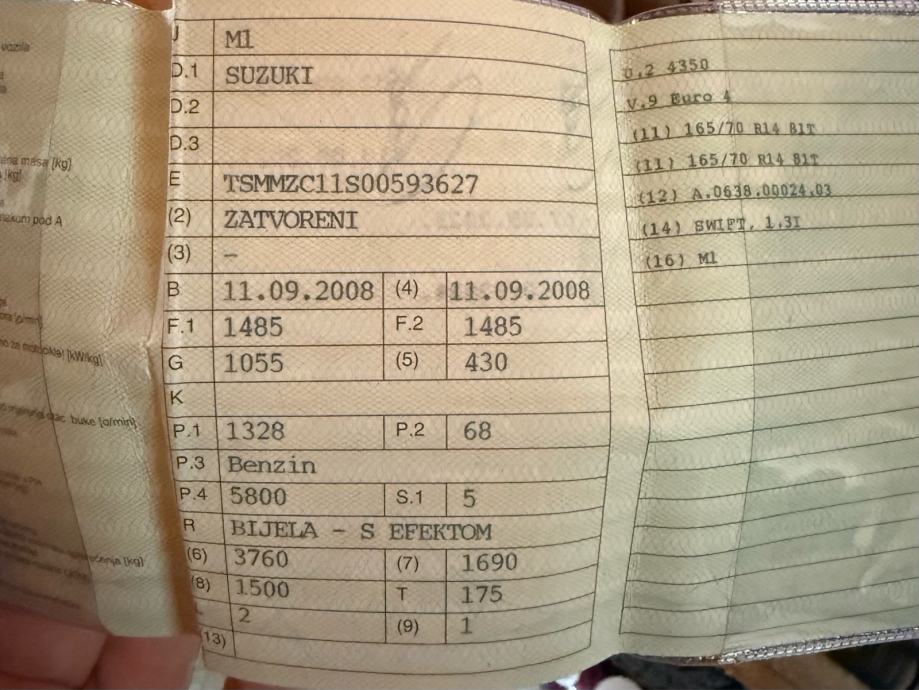 vozila
J M1
D.1 SUZUKI
D.2
D.3
E TSMMZC11S00593627
(2) ZATVORENI
(3) –
B 11.09.2008 (4) 11.09.2008
F.1 1485 F.2 1485
G 1055 (5) 430
K
P.1 1328 P.2 68
P.3 Benzin
P.4 5800 S.1 5
R BIJELA - S EFEKTOM
(6) 3760 (7) 1690
(8) 1500 T 175
L 2 (9) 1
(13)
U.2 4350
V.9 Euro 4
(11) 165/70 R14 81T
(11) 165/70 R14 81T
(12) A.0638.00024.03
(14) SWIFT, 1.3I
(16) M1
masa [kg]
[kg]
pod A
[kW/kg]
buke [o/min]
[kg]